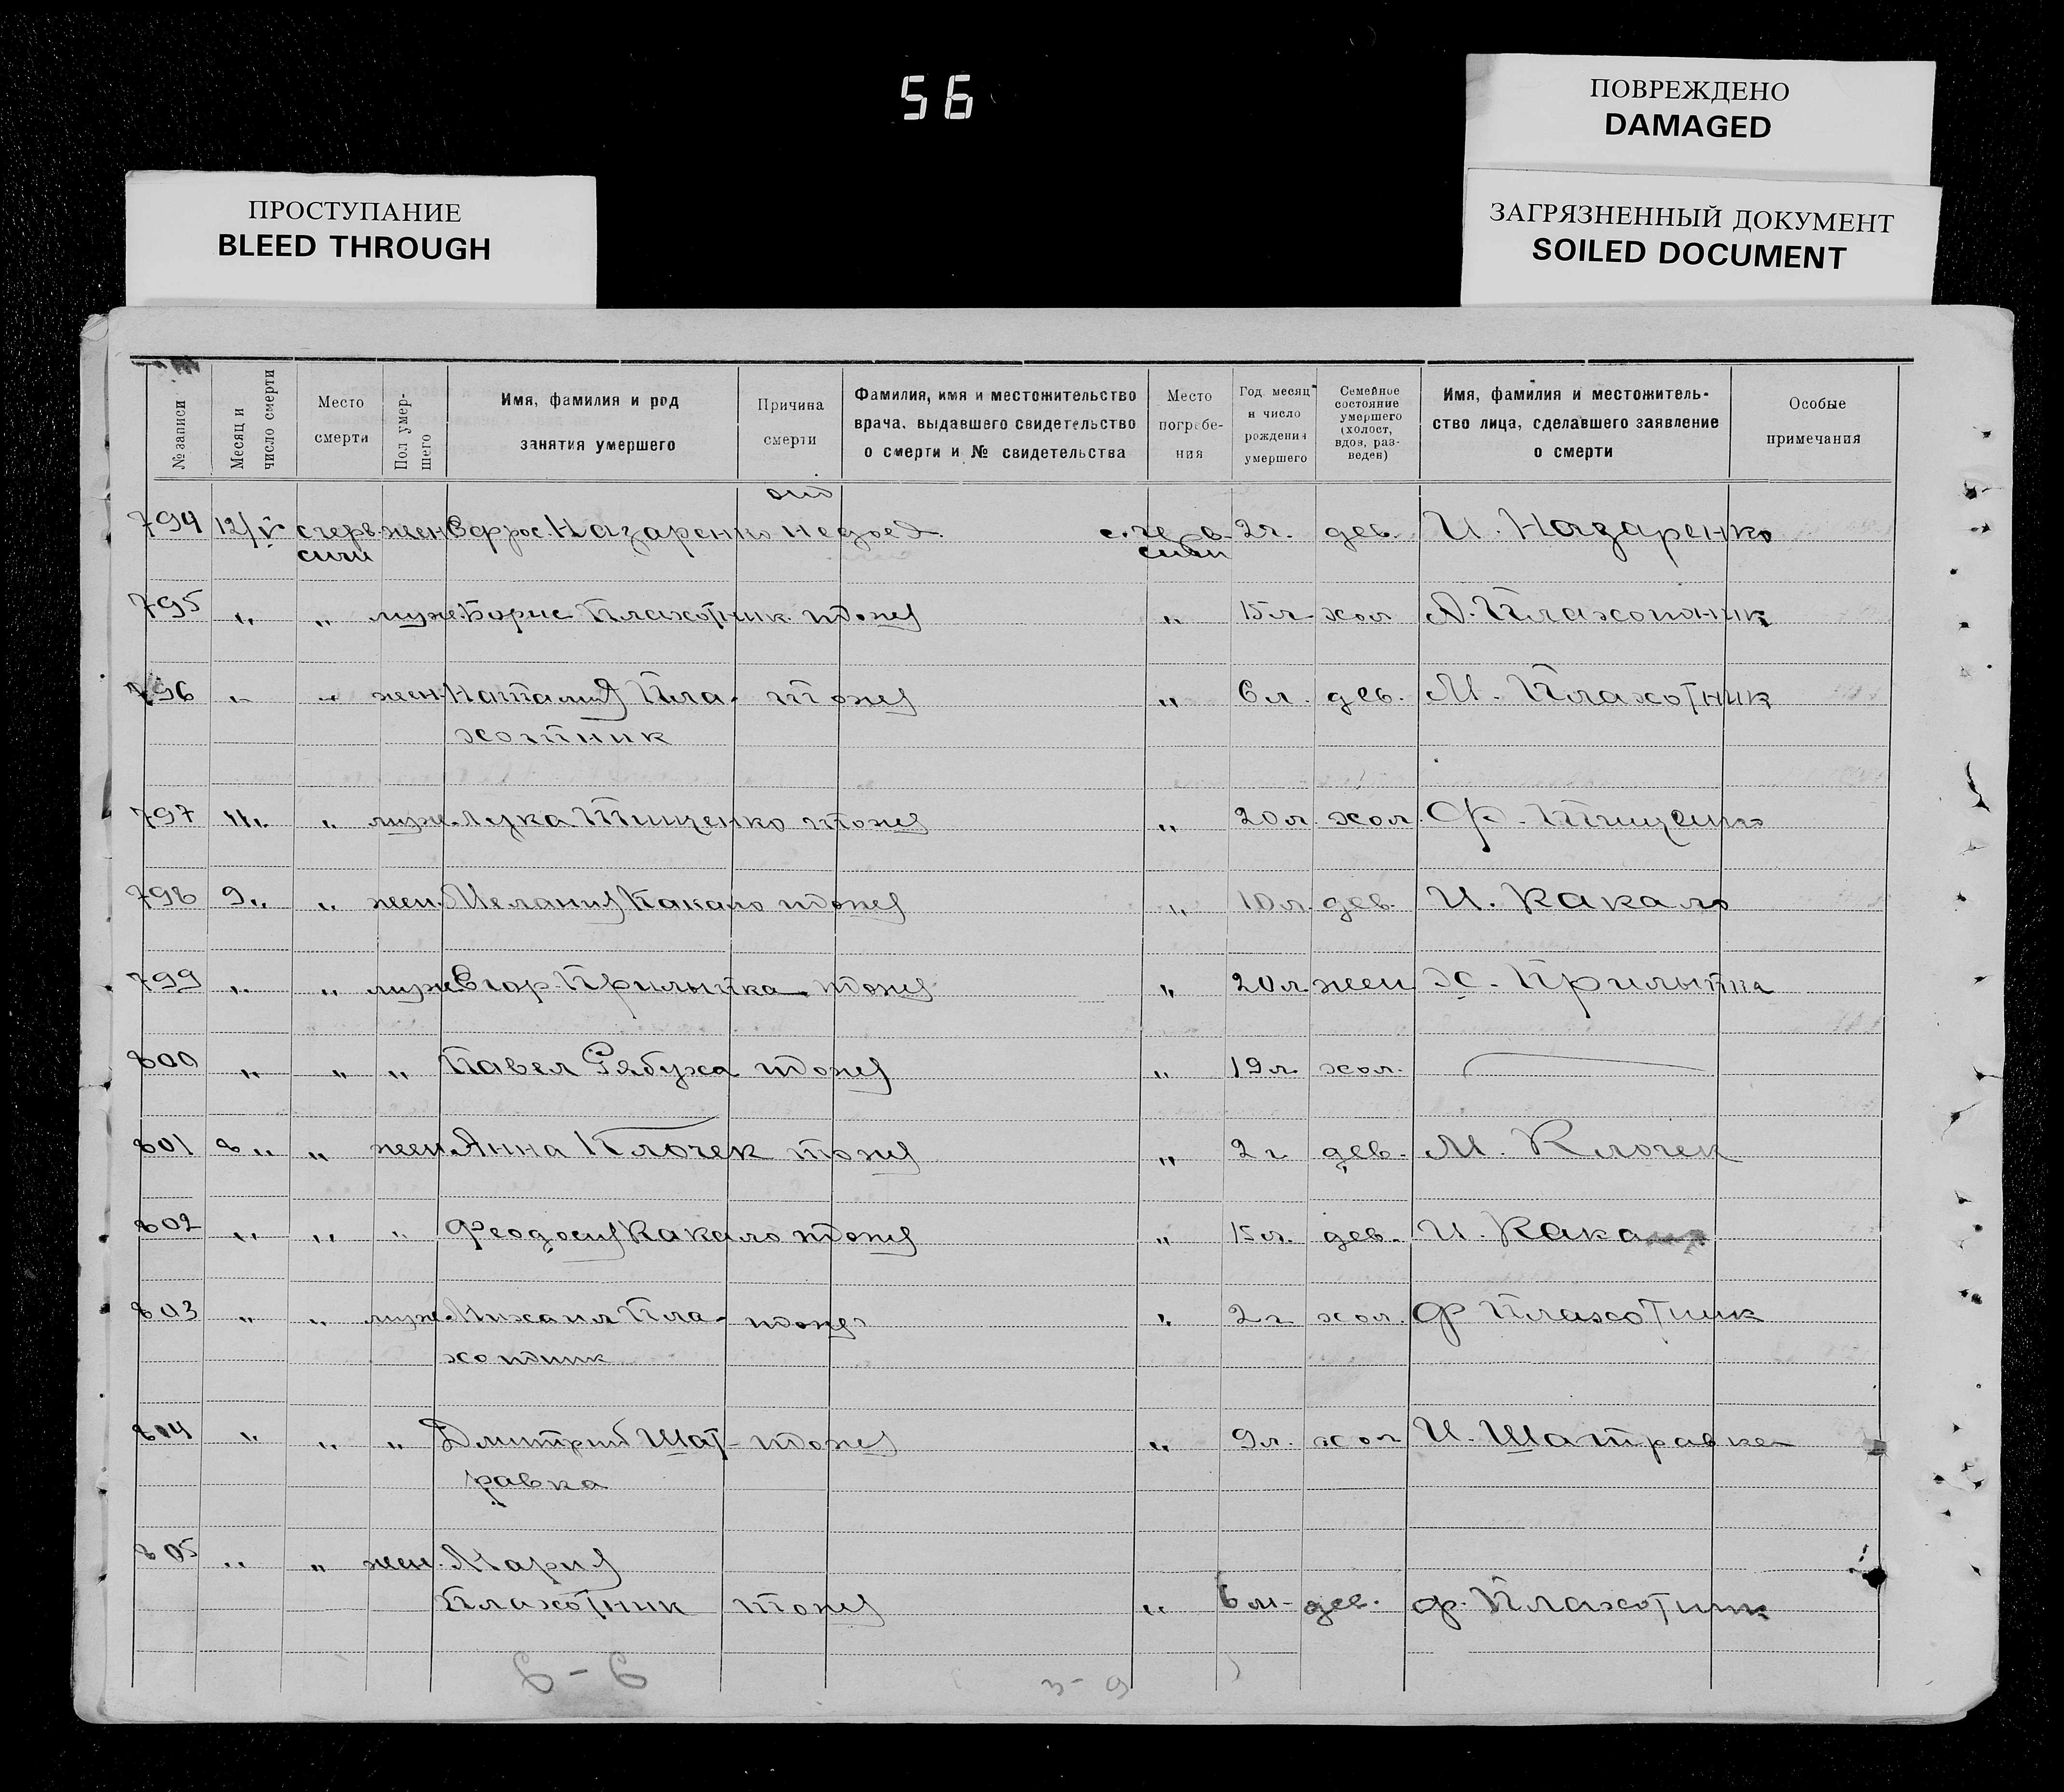 56
ПОВРЕЖДЕНО
DAMAGED
ПРОСТУПАНИЕ
BLEED THROUGH
ЗАГРЯЗНЕННЫЙ ДОКУМЕНТ
SOILED DOCUMENT
№ записи
Месяц и число смерти
Место смерти
Пол умершего
Имя, фамилия и род занятия умершего
Причина смерти
Фамилия, имя и местожительство врача, выдавшего свидетельство о смерти и № свидетельства
Место погребения
Год месяц и число рождения умершего
Семейное состояние умершего (холост, вдов, разведен)
Имя, фамилия и местожительство лица, сделавшего заявление о смерти
Особые примечания
от
794 12/V с черв. жен Ефрос. Назаренко недоед. с. че в. 2 г. дев. И. Назаренко
сили сили
795 " " муж. Борис Плахотник тоже " 15 л хол А. Плахотник
796 " " жен. Наталия Пла- тоже " 6 л. дев. М. Плахотник
хотник
797 11 " " муж. Лука Тищенко тоже " 20 л. хол. Ф. Тищенко
798 9 " " жен. Мелания Какало тоже " 10 л. дев. И. Какало
799 " " муж Егор Прилипка тоже " 20 л жен Х. Прилипка
800 " " " Павел Рябуха тоже " 19 л хол.
801 8 " " жен. Анна Клочек тоже " 2 г дев. М. Клочек
802 " " " Феодосия Какало тоже " 15 л. дев. И.
803 " " муж. Михаил Пла- тоже " 2 г хол. Ф Плахотник
хотник
804 " " " Дмитрий Шат- тоже " 9 л. хол И. Шатравка
равка
805 " " жен. Мария
Плахотник тоже " 6 м. дев. Ф. Плахотник